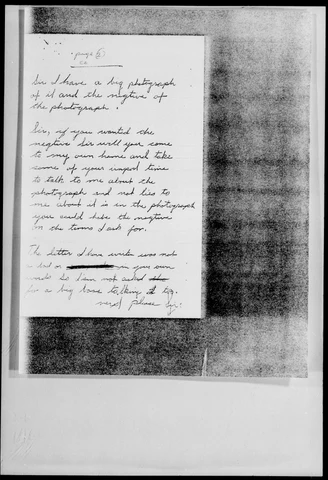 page 6
Sir I have a big photograph
of it and the negtive of
the photograph.
Sir, if you wanted the
negtive Sir will you come
to my own home and take
some of your time
to talk to me about the
photograph and not lies to
me about it is in the photograph
you could have the negtive
on the terms I ask for.
The letter I have was not
on you own
So I am not asked
for a big talking it
please